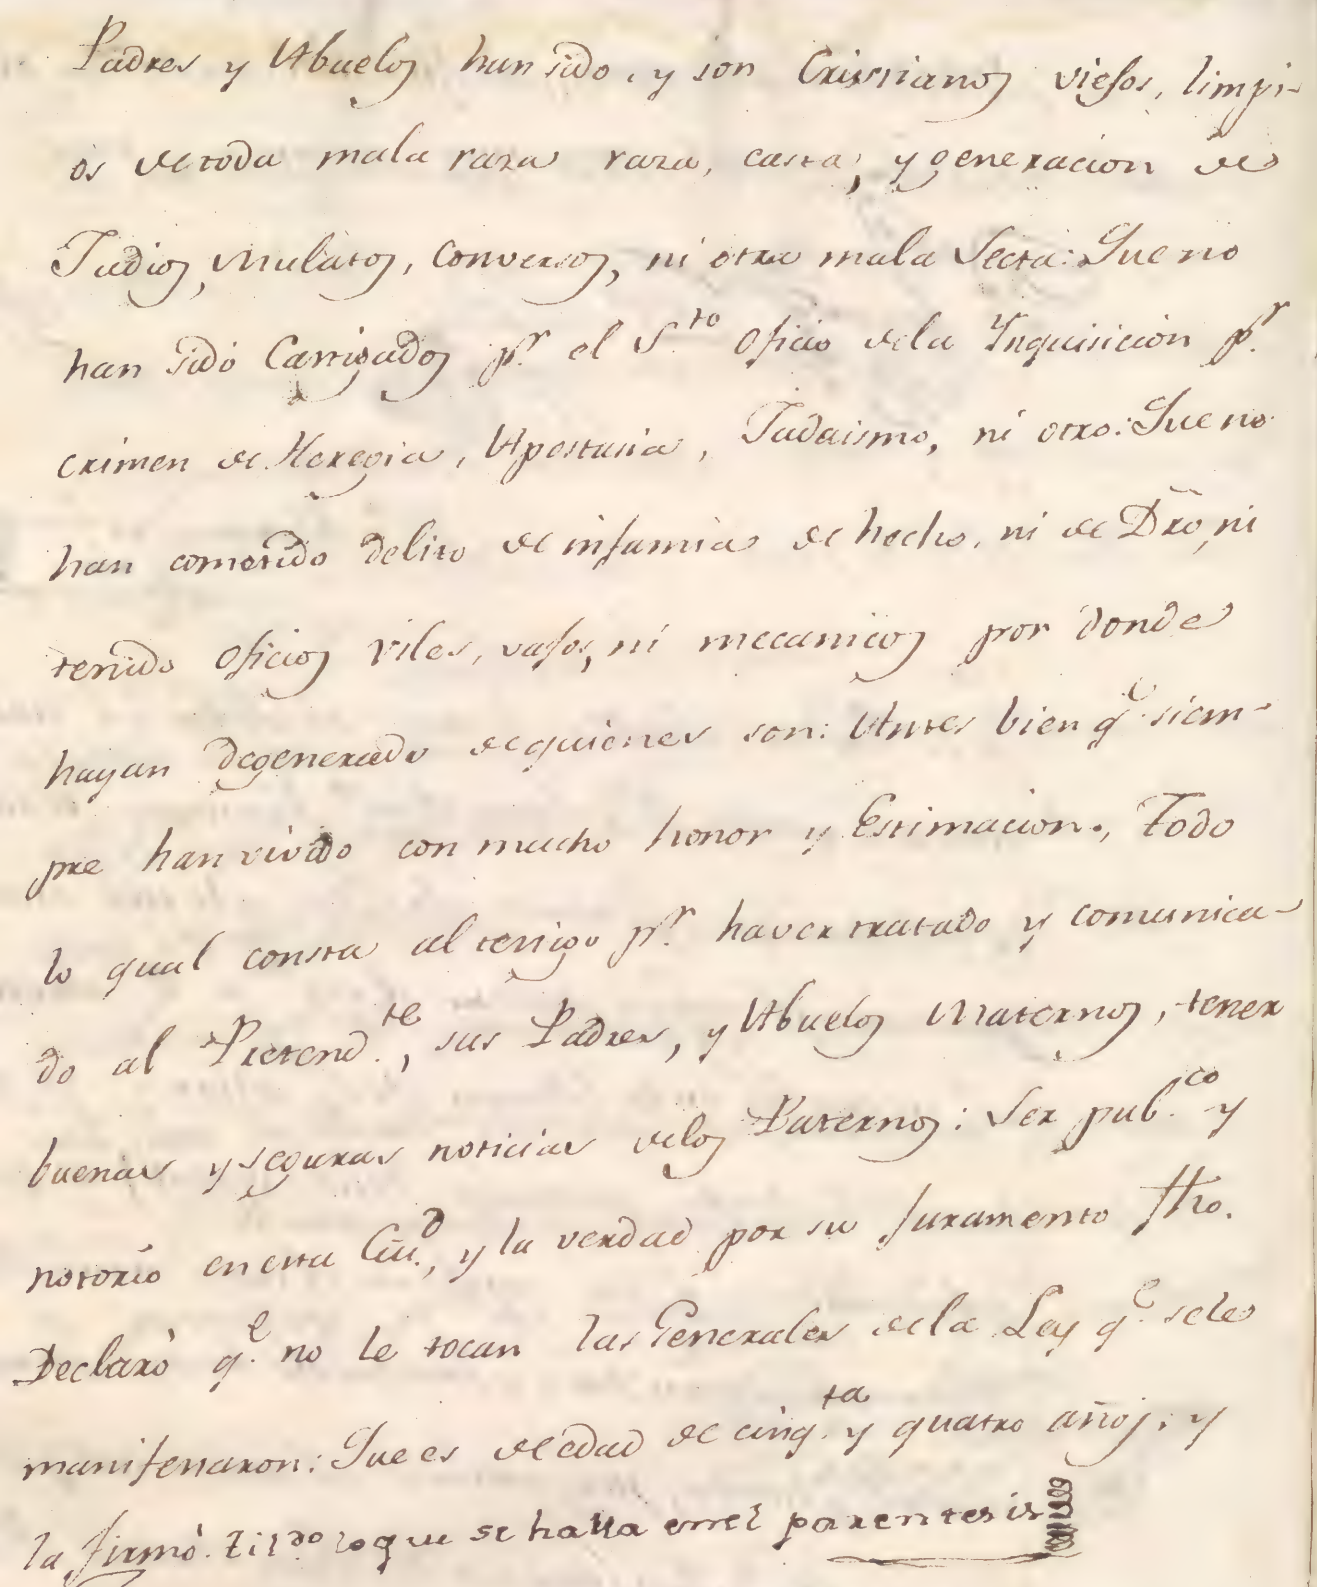 Padres y Abuelos han sido, y son Cristianos viejos, limpi-
os de toda mala raza raza, casta, y generacion de
Judios, Mulatos, Conversos, ni otra mala Secta: Que no
han sido Castigados pr. el Sto. Oficio de la Ynquisicion pr.
crimen de Heregia, Apostasia, Judaismo, ni otro: Que no
han cometido delito de infamia de hecho, ni de Dr̃o, ni
tenido oficios viles, vajos, ni mecanicos por donde
hayan degenerado de quienes son: Antes bien qe. siem-
pre han vivido con mucho honor y Estimacion., Todo
lo qual consta al testigo pr. haver tratado y comunica-
do al Pretendte., sus Padres, y Abuelos Maternos, tener
buenas y seguras noticias de los Paternos: Ser pubco. y
notorio en esta Ciud., y la verdad por su juramento fho.
Declaró qe. no le tocan las Generales de la Ley qe. se le
manifestaron: Que es de edad de cinqta. y quatro años; y
la firmó. tildo lo que se halla en el parentesis